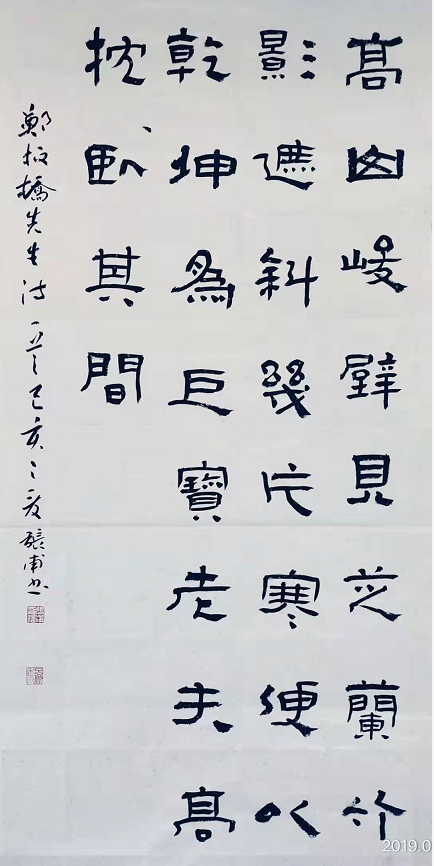 高山峻壁見芝蘭竹
影遮斜幾片寒便以
乾坤為巨寶老夫高
枕臥其間
鄭板橋先生詩一首己亥之夏甫書
2019.0